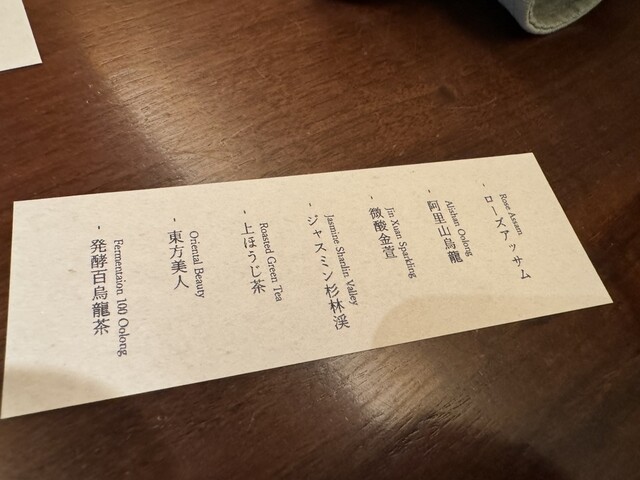 Rose Assam
ローズアッサム
Alishan Oolong
阿里山烏龍
Jin Xuan Sparkling
微酸金萱
Jasmine Shanlin Valley
ジャスミン杉林渓
Roasted Green Tea
上ほうじ茶
Oriental Beauty
東方美人
Fermentaion 100 Oolong
発酵百烏龍茶